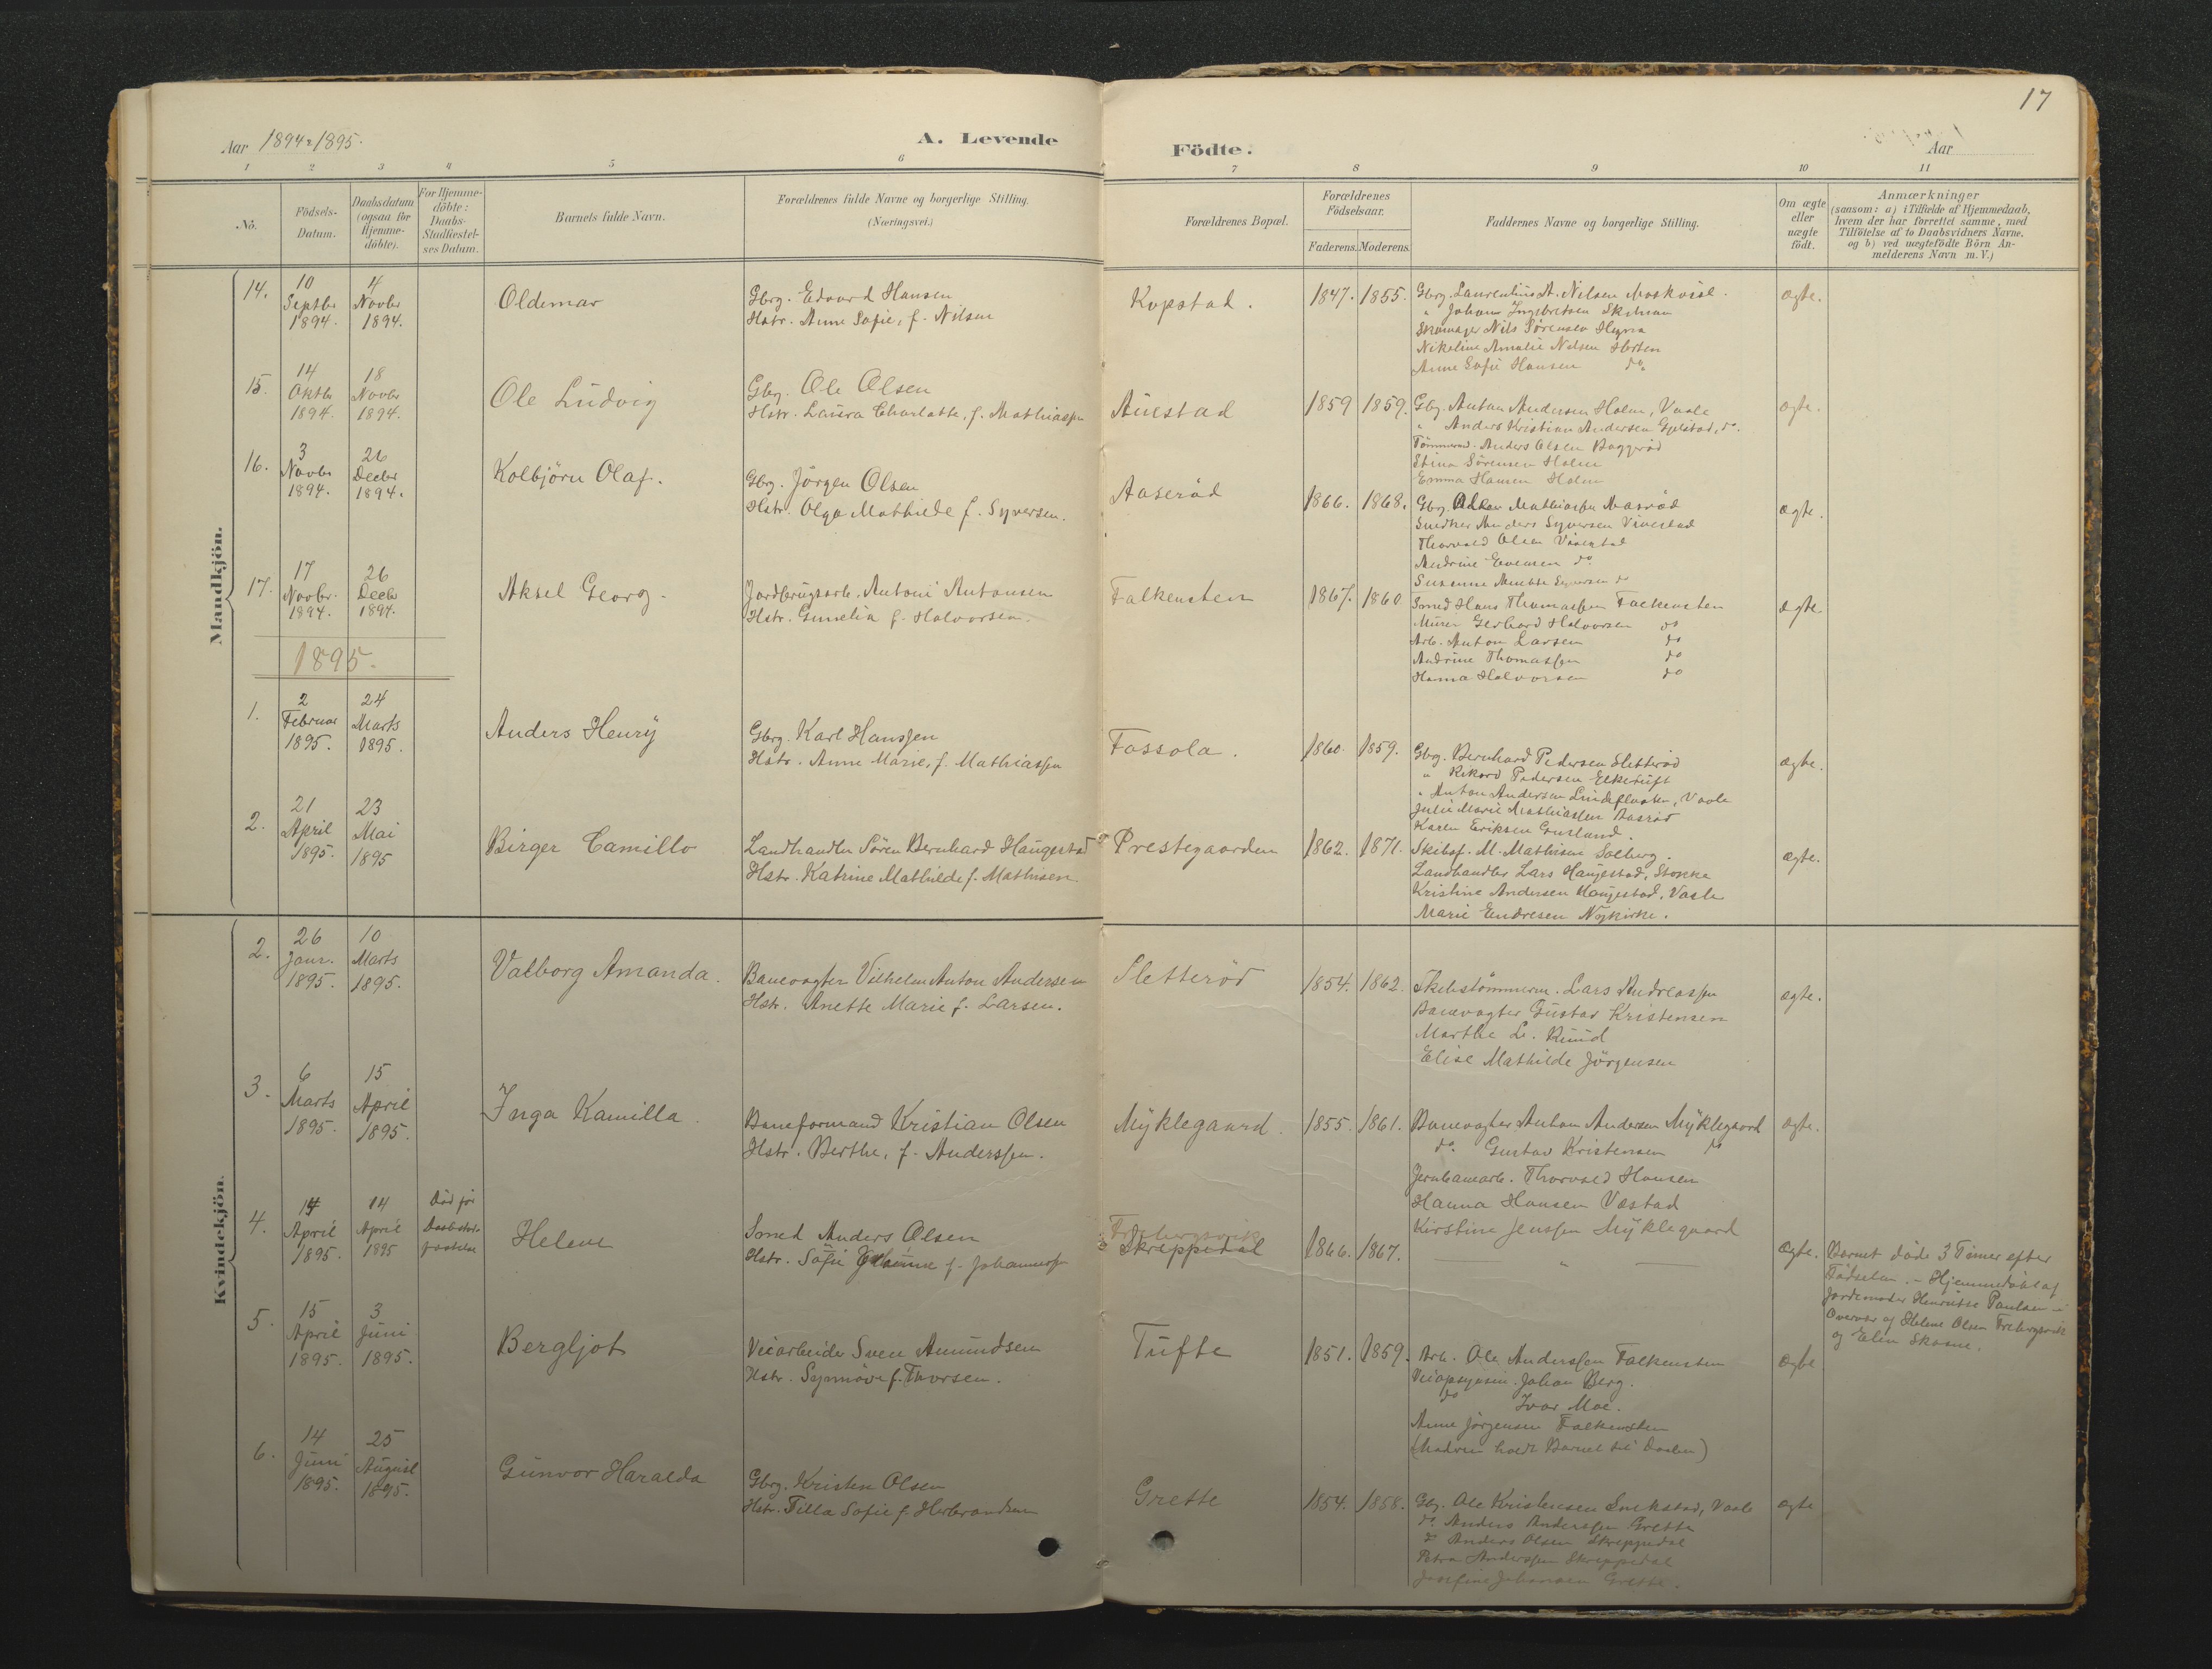 17
Aar 1894 & 1895.
A. Levende
Födte.
Aar
1 2 3 4 5 6 7 8 9 10 11
No.
Födsels-
Datum.
Daabsdatum
(ogsaa for
Hjemme-
döbte).
For Hjemme-
döbte:
Daabs-
Stadfæstel-
ses Datum.
Barnets fulde Navn.
Forældrenes fulde Navne og borgerlige Stilling.
(Næringsvei.)
Forældrenes Bopæl.
Forældrenes
Födselsaar.
Faderens. Moderens.
Faddernes Navne og borgerlige Stilling.
Om ægte
eller
uægte
födt.
Anmærkninger
(saasom: a) i Tilfælde af Hjemmedaab,
hvem der har forrettet samme, med
Tilföielse af to Daabsvidners Navne,
og b) ved uægtefödte Börn An-
melderens Navn m.V.)
Mandkjön.
14.
10
Septbr
1894.
4
Novbr
1894.
Oldemar
Gbrg. Edvard Hansen
Hstr. Anne Sofie, f. Nilsen
Kopstad.
1847. 1855.
Gbrg. Laurentius A. Nilsen
" Johans Ingebretsen
Skomager Nils Sörensen
Nikoline Amalie Nilsen Horten
Anne Sofie Hansen do
ægte.
15.
14
Oktbr
1894.
18
Novbr
1894.
Ole Ludvig
Gbrg. Ole Olsen
Hstr. Laura Charlotte, f. Mathiassen
Auestad
1859 1859.
Gbrg. Anton Andersen Holm, Vaale
" Anders Kristian Andersen Gjelstad, do.
Tömmerm. Anders Olsen Baggeröd
Stina Sörensen Holm
Emma Hansen Holm
ægte.
16.
3
Novbr
1894.
26
Decbr
1894.
Kolbjörn Olaf.
Gbrg. Jörgen Olsen
Hstr. Olga Mathilde f. Syversen.
Aaseröd
1866. 1868.
Gbrg. Mathiassen Aaseröd
Snedker Anders Syversen Vivestad
Thorvald Olsen Vivestad
Andrine Evensen do
Susanne Syversen do
ægte.
17.
17
Novbr.
1894.
26
Decbr
1894.
Aksel Georg.
Jordbrugsarb. Antoni Antonsen
Hstr. Gunelia f. Halvorsen.
Falkensten
1867. 1860
Smed Hans Thomassen Falkensten
Murer Gerhard Halvorsen do
Arb. Anton Larsen do
Andrine Thomassen do
Hanna Halvorsen do
ægte.
1895.
1.
2
Februar
1895.
24
Marts
1895.
Anders Henry
Gbrg. Karl Hanssen
Hstr. Anne Marie, f. Mathiassen
Fossola.
1860. 1859.
Gbrg. Bernhard Pedersen Sletteröd
" Rikard Pedersen Elketuft
" Anton Andersen Lindefloten, Vaale
Julie Marie Mathiassen Aaseröd
Karen Eriksen
ægte.
2.
21
April
1895.
23
Mai
1895
Birger Camillo
Landhandler Sören Bernhard Haugestad
Hstr. Katrine Mathilde f. Mathisen
Prestegaarden
1862. 1871.
Skibsf. M. Mathisen Solberg.
Landhandler Lars Haugestad, Stokke
Kristine Andersen Haugestad, Vaale
Marie Endresen Nykirke.
ægte.
Kvindekjön.
2.
26
Janr.
1895.
10
Marts
1895.
Valborg Amanda.
Banevogter Vilhelm Anton Andersen
Hstr. Anette Marie f. Larsen.
Sletteröd
1854. 1862.
Skibstömmerm. Lars Andreassen
Banevogter Gustav Kristensen
Marthe L. Ruud
Elise Mathilde Jörgensen
ægte.
3.
6
Marts
1895.
15
April
1895.
Inga Kamilla.
Baneformand Kristian Olsen
Hstr. Berthe, f. Anderssen.
Myklegaard.
1855. 1861.
Banevogter Anton Andersen Myklegaard
do. Gustav Kristensen do
Jernbanearb. Thorvald Hansen
Hanna Hansen Vestad
Kirstine Jenssen Myklegaard
ægte.
4.
14
April
1895.
14
April
1895
Död för
Daabsstad-
fæstelse
Helene
Smed Anders Olsen
Hstr. Sofie f. Johannessen
Frebergsvik
Skreppedal
1866. 1867.
"
ægte.
Barnet döde 3 Timer efter
Födselen. - Hjemmedöbt af
Jordemoder Henriette Paulsen i
Overvær af Helene Olsen Frebergsvik
og Elen Skaane.
5.
15
April
1895.
3
Juni
1895.
Bergljot
Veiarbeider Sven Amundsen
Hstr. Synnöve f. Thorsen.
Tufte
1851. 1859.
Arb. Ole Anderssen Falkensten
Veiopsynsm. Johan Berg.
do Ivar Moe.
Anne Jörgensen Falkensten
(Moderen holdt Barnet til Daaben)
ægte
6.
14
Juni
1895.
25
August
1895.
Gunvor Haralda
Gbrg. Kristen Olsen
Hstr. Tilla Sofie f. Herbrandsen
Grette
1854. 1858.
Gbrg. Ole Kristensen Vaale
do. Anders Anderssen Grette
do Anders Olsen Skreppedal
Petra Anderssen Skreppedal
Josefine Johansen Grette.
ægte